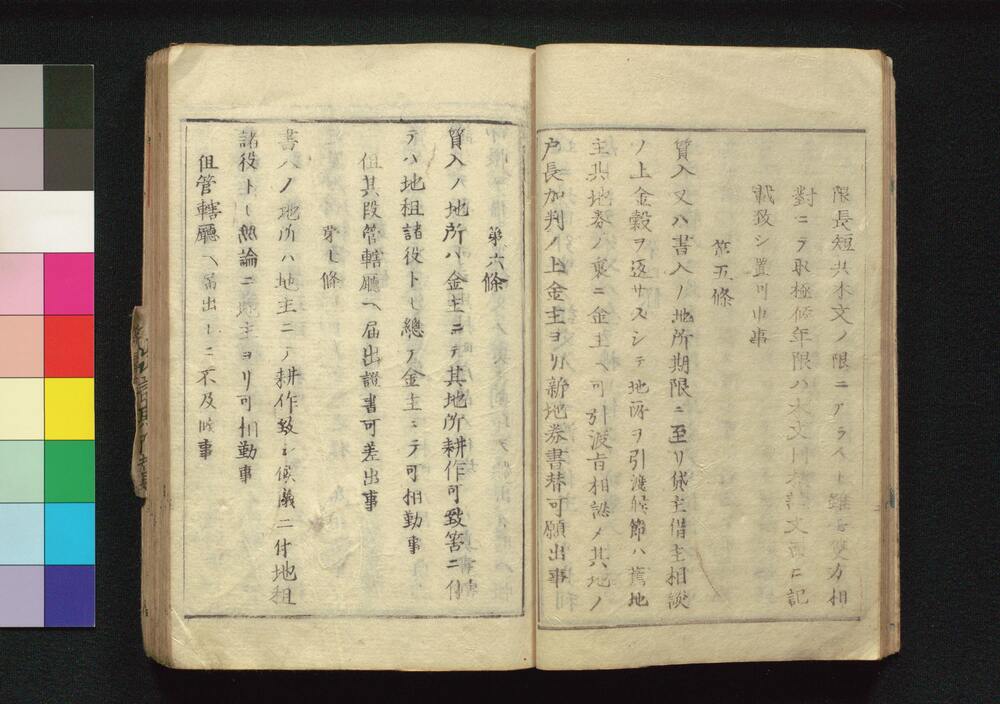 限長短共本文ノ限ニアラスト雖モ雙方相
對ニテ取極候年限ハ本文同様證文面ニ記
載致シ置可申事
第五條
質入又ハ書入ノ地所期限ニ至リ貸主借主相談
ノ上金穀ヲ返サスシテ地所ヲ引渡候節ハ舊地
主共地券ノ裏ニ金主ヘ可引渡旨相認メ其地ノ
戸長加判ノ上金主ヨリ新地券書替可願出事
第六條
質入ノ地所ハ金主ニテ其地所耕作可致筈ニ付
テハ地租諸役トモ總テ金主ニテ可相勤事
但其段管轄廳ヘ届出證書可差出事
第七條
書入ノ地所ハ地主ニテ耕作致シ候儀ニ付地租
諸役トモ無論ニ地主ヨリ可相勤事
但管轄廳ヘ届出ルニ不及候事